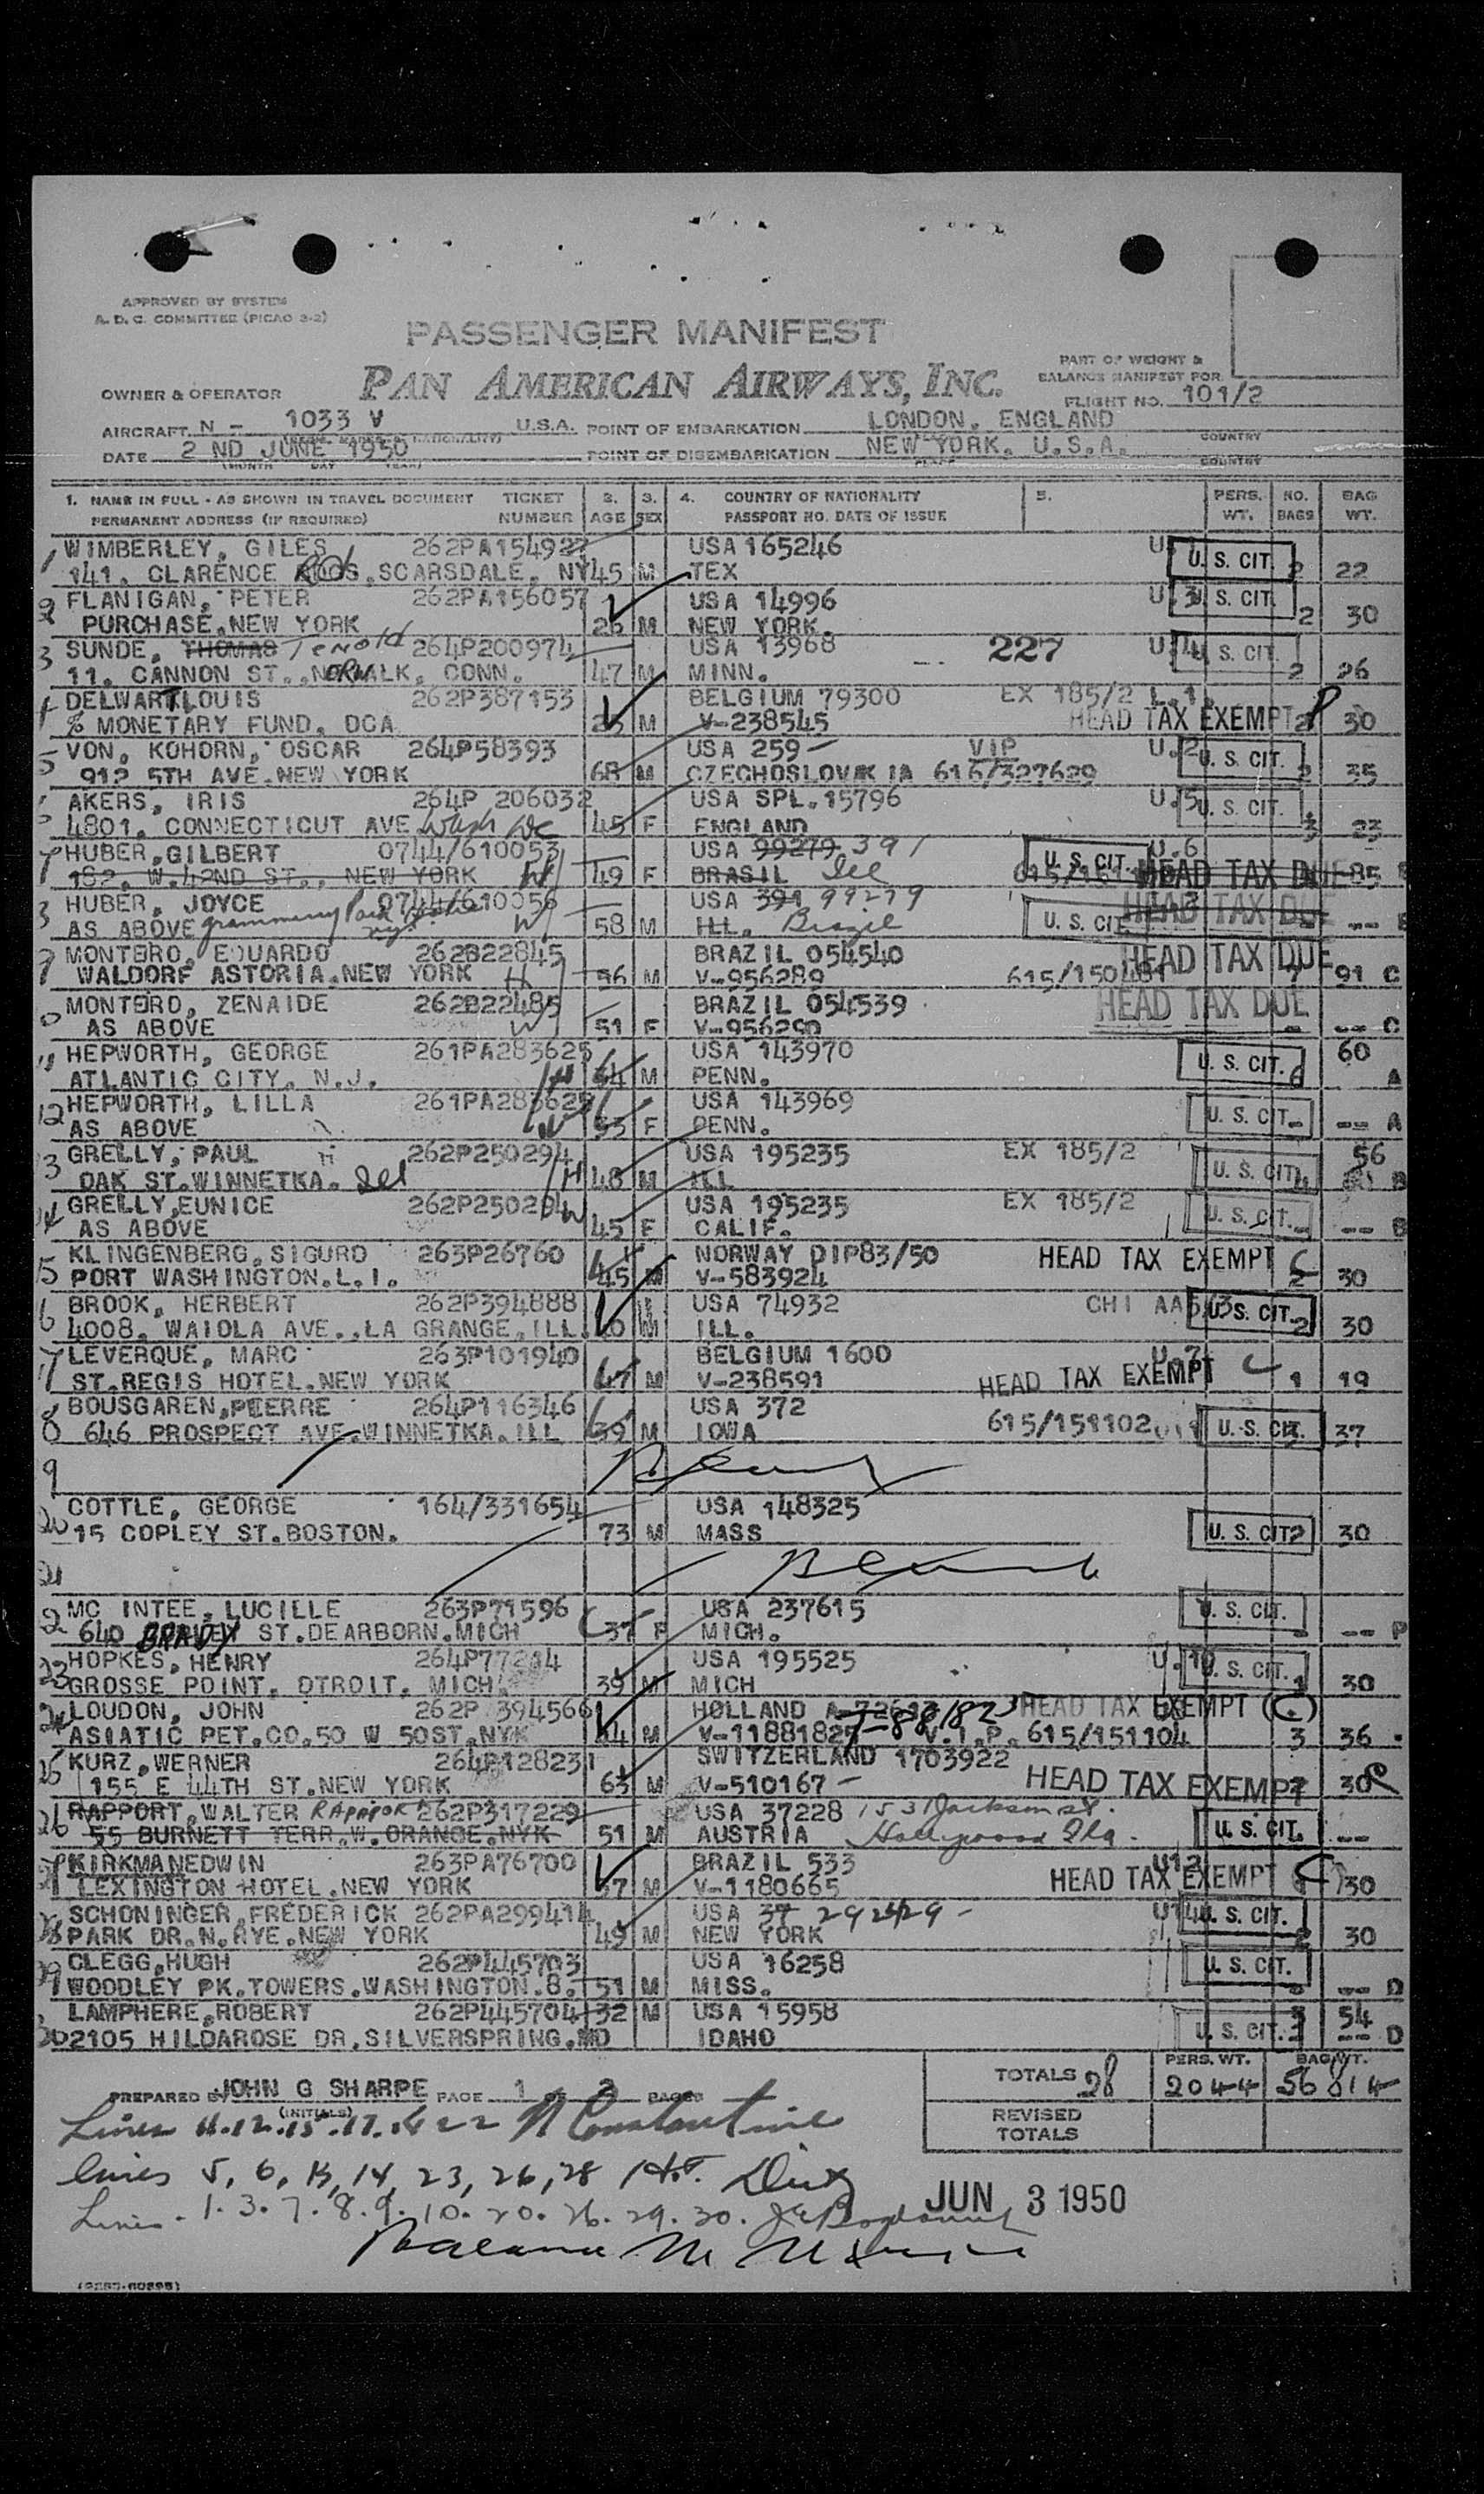 APPROVED BY SYSTEM
A. D. C. COMMITTEE (PICAO 3-2)
PASSENGER MANIFEST
PAN AMERICAN AIRWAYS, INC.
PART OF WEIGHT &
BALANCE MANIFEST FOR
FLIGHT NO. 101/2
OWNER & OPERATOR
AIRCRAFT N - 1033 V U.S.A. POINT OF EMBARKATION LONDON, ENGLAND COUNTRY
DATE 2 ND JUNE 1950 POINT OF DISEMBARKATION NEW YORK, U.S.A. COUNTRY
(MONTH DAY YEAR) PLACE
1. NAME IN FULL - AS SHOWN IN TRAVEL DOCUMENT TICKET 2. 3. 4. COUNTRY OF NATIONALITY 5. PERS. NO. BAG
PERMANENT ADDRESS (IF REQUIRED) NUMBER AGE SEX PASSPORT NO. DATE OF ISSUE WT. BAGS WT.
1 WIMBERLEY, GILES 262PA154922 USA 165246 U. U. S. CIT.
141. CLARENCE SCARSDALE, NY 45 M TEX 2 22
2 FLANIGAN, PETER 262PA156057 USA 14996 U.3 U. S. CIT.
PURCHASE.NEW YORK 26 M NEW YORK. 2 30
3 SUNDE, THOMAS Tenold 264P200974 USA 13968 227 U.4 U. S. CIT.
11. CANNON ST..NORWALK. CONN. 47 M MINN. 2 26
4 DELWART.LOUIS 262P387153 BELGIUM 79300 EX 185/2 L.1.
% MONETARY FUND. DCA M V-238545 HEAD TAX EXEMPT 2 30
5 VON, KOHORN, OSCAR 264P58393 USA 259 VIP U.2 U. S. CIT.
912 5TH AVE.NEW YORK 68 M CZECHOSLOVAKIA 616/327629 2 35
AKERS, IRIS 264P 206032 USA SPL.15796 U.5 U. S. CIT.
4801. CONNECTICUT AVE Wash DC 45 F ENGLAND 3 23
7 HUBER,GILBERT 0744/610053 USA 99279 391 U.6 U. S. CIT.
182. W.42ND ST., NEW YORK 49 F BRASIL Ill HEAD TAX DUE 85
HUBER, JOYCE 0744/610056 USA 391 99279 HEAD TAX DUE
AS ABOVE 58 M ILL. Brazil U. S. CIT. --
MONTBRO, EDUARDO 262B22845 BRAZIL 054540 HEAD TAX DUE
WALDORF ASTORIA.NEW YORK 56 M V-956289 615/150481 91 C
MONTBRO, ZENAIDE 262B22485 BRAZIL 054539 HEAD TAX DUE
AS ABOVE 51 F V-956290 -- C
11 HEPWORTH, GEORGE 261PA283625 USA 143970 U. S. CIT. 60
ATLANTIC CITY. N.J. 54 M PENN. 6 A
12 HEPWORTH, LILLA 261PA283625 USA 143969 U. S. CIT.
AS ABOVE 53 F PENN. -- A
3 GRELLY, PAUL 262P250294 USA 195235 EX 185/2 56
OAK ST.WINNETKA. Ill 48 M ILL U. S. CIT. 4 B
14 GRELLY,EUNICE 262P250294 USA 195235 EX 185/2 U. S. CIT.
AS ABOVE 45 F CALIF. -- B
15 KLINGENBERG,SIGURD 263P26760 NORWAY DIP83/50 HEAD TAX EXEMPT C
PORT WASHINGTON.L.I. 45 M V-583924 2 30
6 BROOK, HERBERT 262P394888 USA 74932 CHI AA U. S. CIT.
4008. WAIOLA AVE..LA GRANGE.ILL. M ILL. 2 30
17 LEVERQUE, MARC 263P101940 BELGIUM 1600 U.7
ST.REGIS HOTEL.NEW YORK 47 M V-238591 HEAD TAX EXEMPT C 1 19
8 BOUSGAREN,PIERRE 264P116346 USA 372
646 PROSPECT AVE.WINNETKA.ILL 39 M IOWA 615/151102 U. S. CIT. 37
9
20 COTTLE, GEORGE 164/331654 USA 148325
15 COPLEY ST.BOSTON. 73 M MASS U. S. CIT. 2 30
21
2 MC INTEE, LUCILLE 263P71596 USA 237615 U. S. CIT.
640 BRADY ST.DEARBORN.MICH 37 F MICH. --
23 HOPKES, HENRY 264P77214 USA 195525 U.10 U. S. CIT.
GROSSE POINT. DTROIT. MICH. 39 M MICH 1 30
24 LOUDON, JOHN 262P 394566 HOLLAND HEAD TAX EXEMPT (C.)
ASIATIC PET.CO.50 W 50ST.NYK 44 M V-1188182 V.I.P. 615/151104 3 36
25 KURZ,WERNER 264P128231 SWITZERLAND 1703922
155 E 44TH ST.NEW YORK 63 M V-510167 HEAD TAX EXEMPT 30
26 RAPPORT,WALTER RAPAPORT 262P317229 USA 37228 1531 Jackson St.
55 BURNETT TERR.W.ORANGE.NYK 51 M AUSTRIA Hollywood Fla. U. S. CIT. --
KIRKMANEDWIN 263PA76700 BRAZIL 533 U12
LEXINGTON HOTEL.NEW YORK 37 M V-1180665 HEAD TAX EXEMPT 30
28 SCHONINGER,FREDERICK 262PA299414 USA 37 292429 - U14 U. S. CIT.
PARK DR.N.RYE.NEW YORK 49 M NEW YORK 2 30
29 CLEGG,HUGH 262P445703 USA 16258 U. S. CIT.
WOODLEY PK.TOWERS.WASHINGTON.8. 51 M MISS. -- D
30 LAMPHERE,ROBERT 262P445704 32 M USA 15958 3 54
2105 HILDAROSE DR.SILVERSPRING.MD IDAHO U. S. CIT. -- D
TOTALS 28 PERS. WT. 2044 BAG WT. 814
PREPARED BY JOHN G SHARPE PAGE 1 OF 2 PAGES
(INITIALS)
REVISED
TOTALS
Lines 11.12.15.17.18 22 N Constantine
lines 5, 6, 13, 14, 23, 26, 28
Lines - 1. 3. 7. 8. 9. 10. 20. 26. 29. 30.
JUN 3 1950